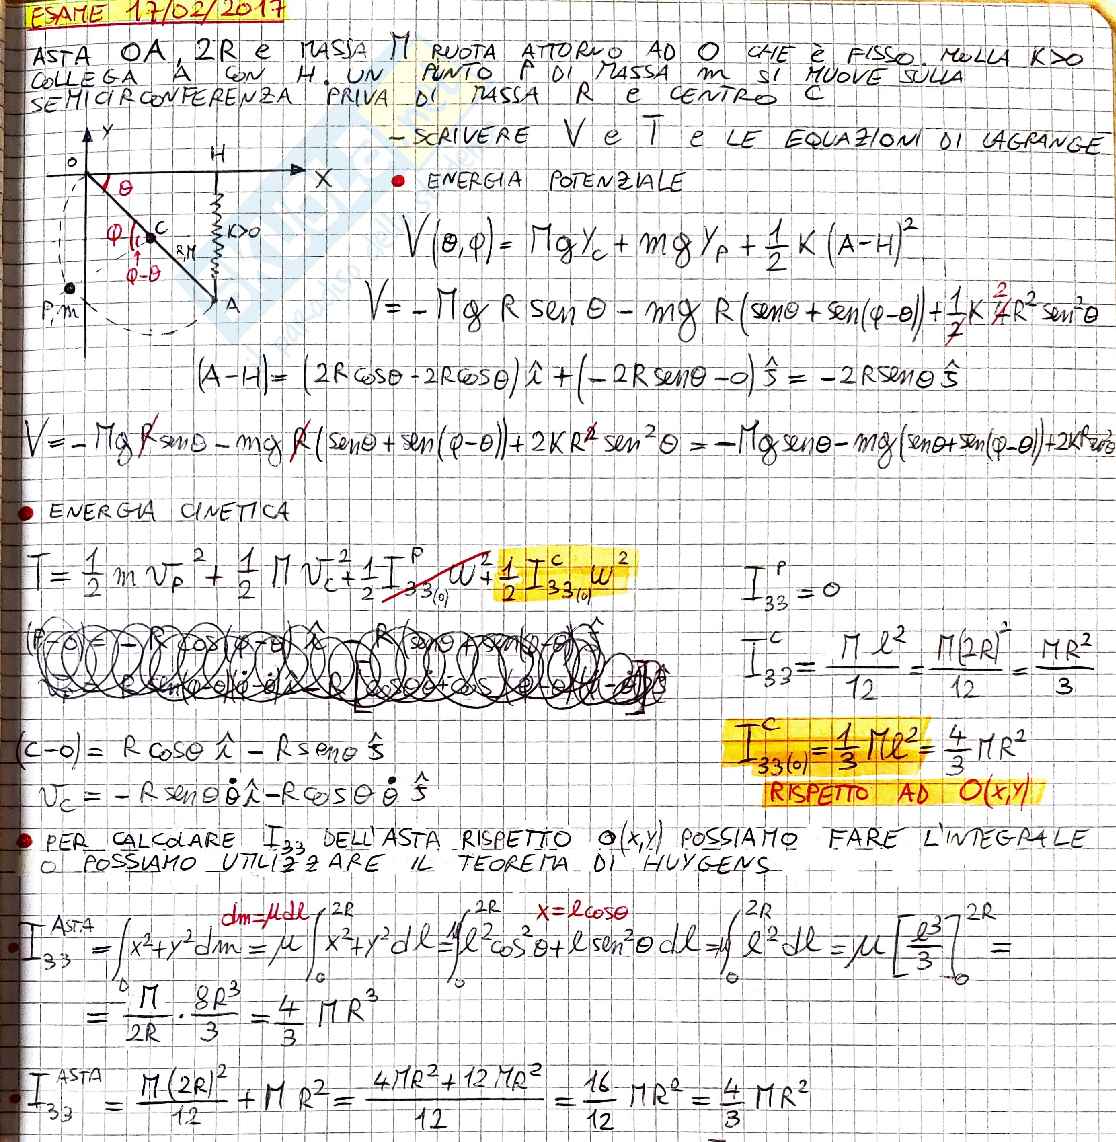 ESAME 17/02/2017
ASTA OA, 2R e MASSA M RUOTA ATTORNO AD O CHE è FISSO. MOLLA K>0
COLLEGA A CON H. UN PUNTO P DI MASSA m SI MUOVE SULLA
SEMICIRCONFERENZA PRIVA DI MASSA R e CENTRO C
- SCRIVERE V e T e LE EQUAZIONI DI LAGRANGE
Y
O H X
θ
• ENERGIA POTENZIALE
φ C K>0
R,M
φ-θ
P,m A
V(θ,φ) = MgYc + mgYp + 1/2 K (A-H)²
V = -MgR senθ - mg R(senθ + sen(φ-θ)) + 1/2 K 4R² sen²θ
2
(A-H) = (2Rcosθ - 2Rcosθ) î + (-2Rsenθ - 0) ĵ = -2Rsenθ ĵ
V = -MgRsenθ - mgR(senθ + sen(φ-θ)) + 2KR² sen²θ = -Mgsenθ - mg(senθ + sen(φ-θ)) + 2KR
• ENERGIA CINETICA
T = 1/2 m vp² + 1/2 M vc² + 1/2 I^P 33(0) ω² + 1/2 I^C 33(0) ω²
I^P 33 = 0
I^C 33 = Ml²/12 = M(2R)²/12 = MR²/3
(C-O) = Rcosθ î - Rsenθ ĵ
I^C 33(0) = 1/3 Ml² = 4/3 MR²
vc = -Rsenθ θ̇ î - Rcosθ θ̇ ĵ
RISPETTO AD O(x,y)
• PER CALCOLARE I33 DELL'ASTA RISPETTO O(x,y) POSSIAMO FARE L'INTEGRALE
O POSSIAMO UTILIZZARE IL TEOREMA DI HUYGENS
dm=μdl x=lcosθ
• I^ASTA 33 = ∫₀ x²+y² dm = μ ∫₀^2R x²+y² dl = μ ∫₀^2R l²cos²θ + l sen²θ dl = μ ∫₀^2R l² dl = μ [l³/3]₀^2R =
= M/2R · 8R³/3 = 4/3 MR³
• I^ASTA 33 = M(2R)²/12 + MR² = 4MR²+12MR²/12 = 16/12 MR² = 4/3 MR²